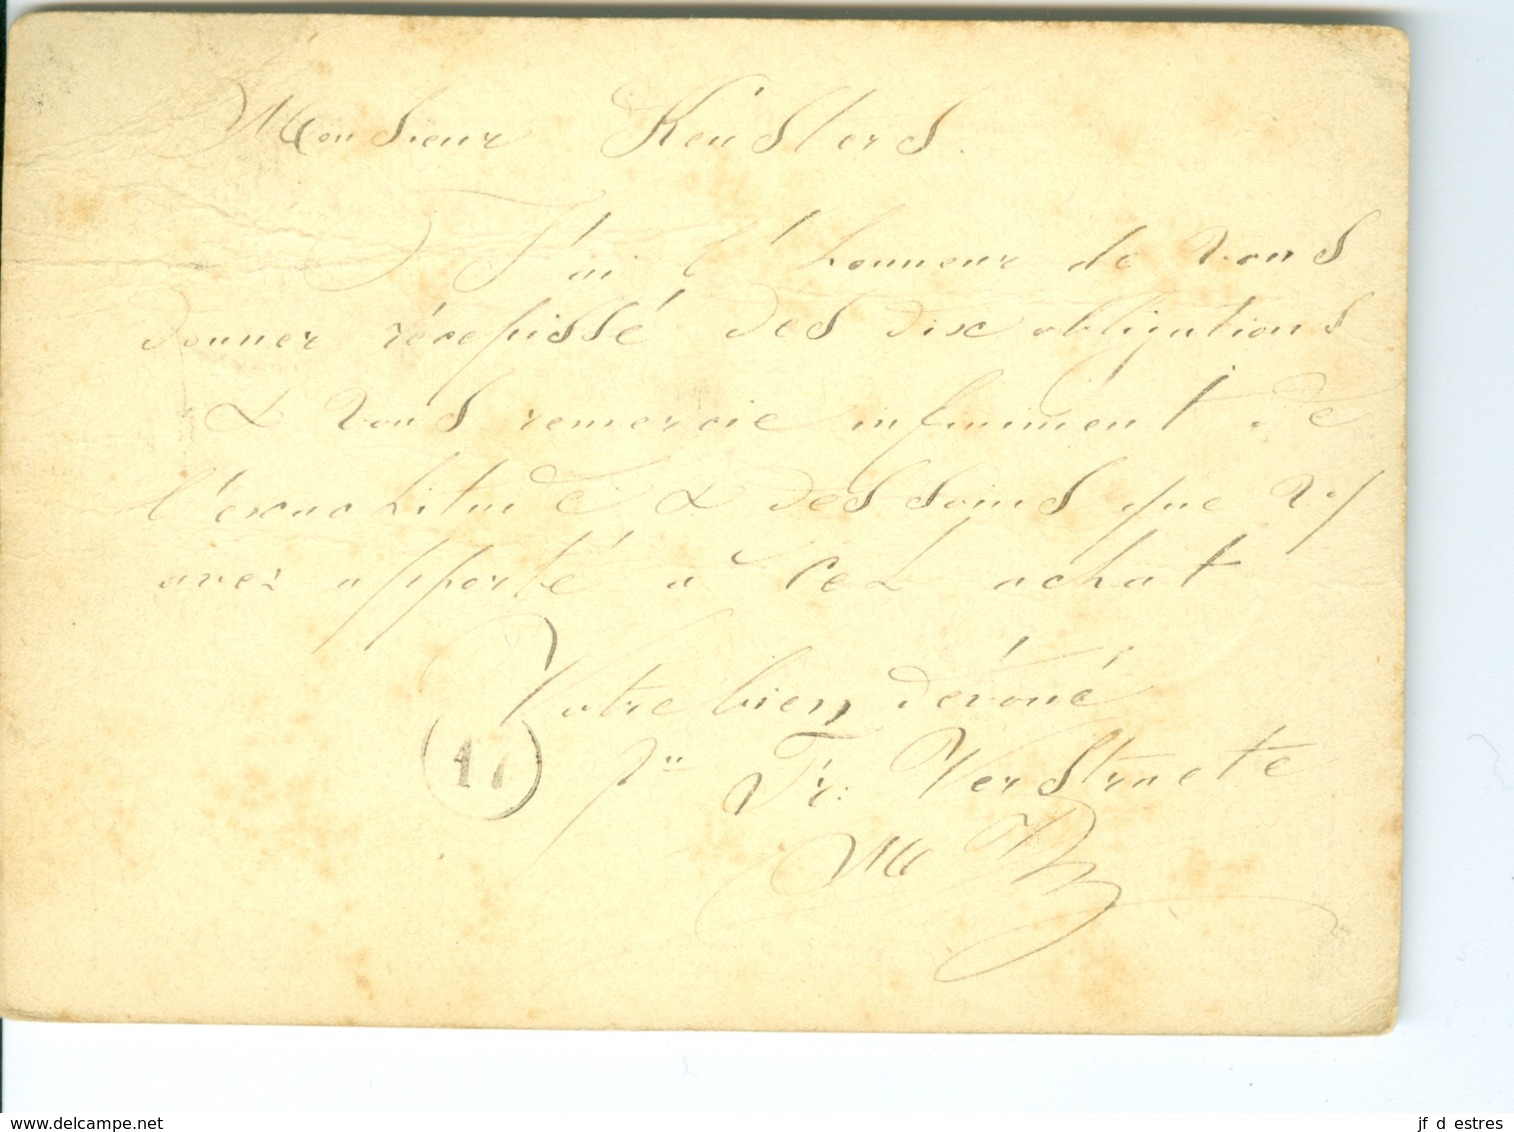 Monsieur Keusters.
J'ai l'honneur de vous
donner récépissé des dix obligations
& vous remercie infiniment de
l'exactitude & des soins que v/
avez apporté à cet achat
Votre bien dévoué
pr Fr: Verstraete
17
www.delcampe.net
jf d estres